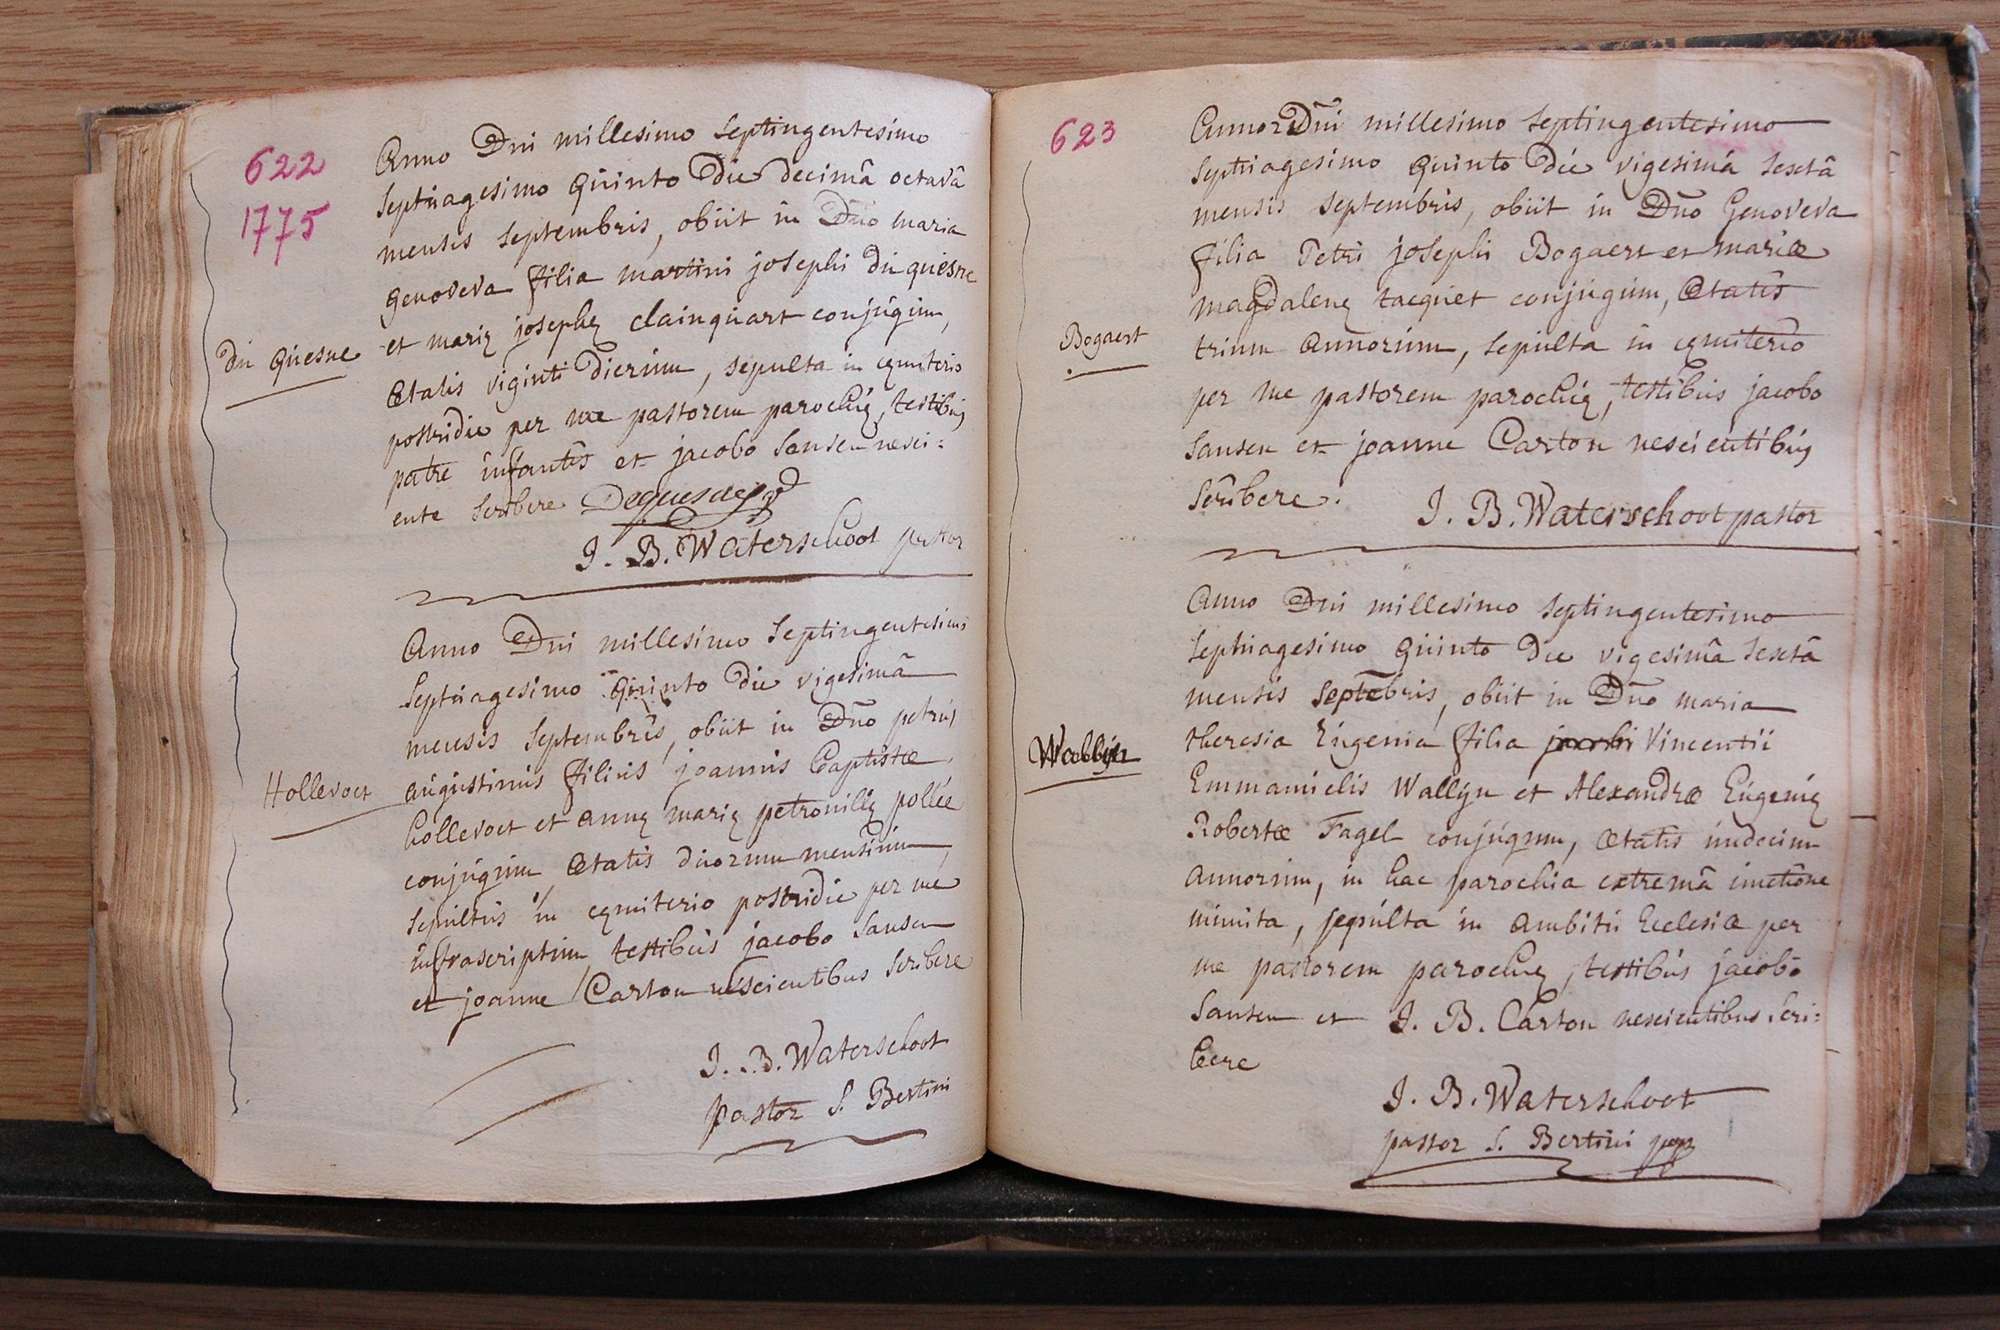 622
1775
Anno Dni millesimo Septingentesimo
Septuagesimo quinto Die decimâ octavâ
mensis Septembris, obiit in Dño maria
genoveva filia martini josephi du quesne
et marię josephę clainquart conjúgúm,
du quesne
Ætatis viginti Dierúm, sepulta in cęmiterio
postridie per me pastorem parochię, testibus
patre infantis et jacobo Sansen nesci=
ente scribere
J. B. Waterschoot pastor
Anno Dni millesimo Septingentesimo
Septuagesimo quinto die vigesimâ
mensis Septembris, obiit in Dño petrus
augustinus filius joannis Baptistæ
Hollevoet
hollevoet et annę marię petronillę pollée
conjúgúm Ætatis duorum mensium,
sepultus in cęmiterio postridie per me
infrascriptum testibus jacobo Sansen
et joanne Carton nescientibus scribere
J. B. Waterschoot
pastor S. Bertini
623
Anno Dñi millesimo Septingentesimo
Septuagesimo quinto Die vigesimâ sextâ
mensis Septembris, obiit in Dño Genoveva
filia Petri josephi Bogaert et mariæ
magdalenę tacquet conjúgúm, Ætatis
Bogaert
trium annorúm, sepulta in cęmiterio
per me pastorem parochię, testibus jacobo
Sansen et joanne Carton nescientibus
scribere.
J. B. Waterschoot pastor
Anno Dni millesimo Septingentesimo
Septuagesimo quinto die vigesimâ sextâ
mensis Septēbris, obiit in Dño maria
theresia Eúgenia filia Vincentii
Wallÿn
Emmanúelis Wallÿn et Alexandræ Eúgenię
Robertæ Fagel conjúgúm, Ætatis úndecim
annorúm, in hac parochia extremâ únctione
múnita, sepúlta in ambitú Ecclesiæ per
me pastorem parochię, testibús jacobo
Sansen et J. B. Carton nescientibus scri=
bere
J. B. Waterschoot
pastor S. Bertini